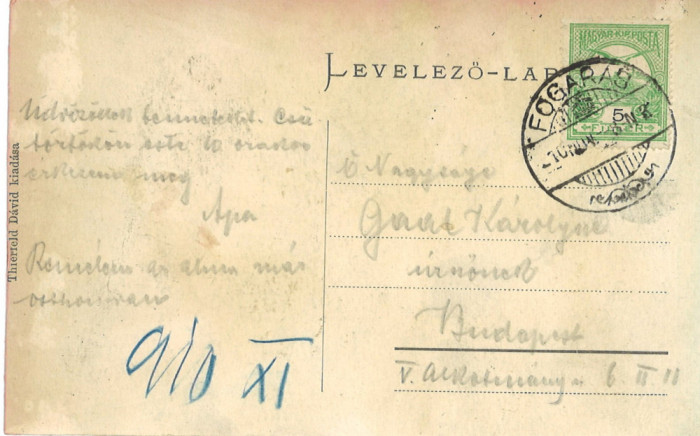 LEVELEZŐ-LAP
MAGYAR KIR. POSTA
5
FILLÉR
FOGARAS
Üdvözöllek benneteket. Csü-
törtökön este 10 órakor
érkezem meg
Apa
Remélem az alma már
otthon van
910 XI
Ő Nagysága
Gaal Károlyné
úrnőnek
Budapest
V. Alkotmány u 6. II 11
Thierfeld Dávid kiadása